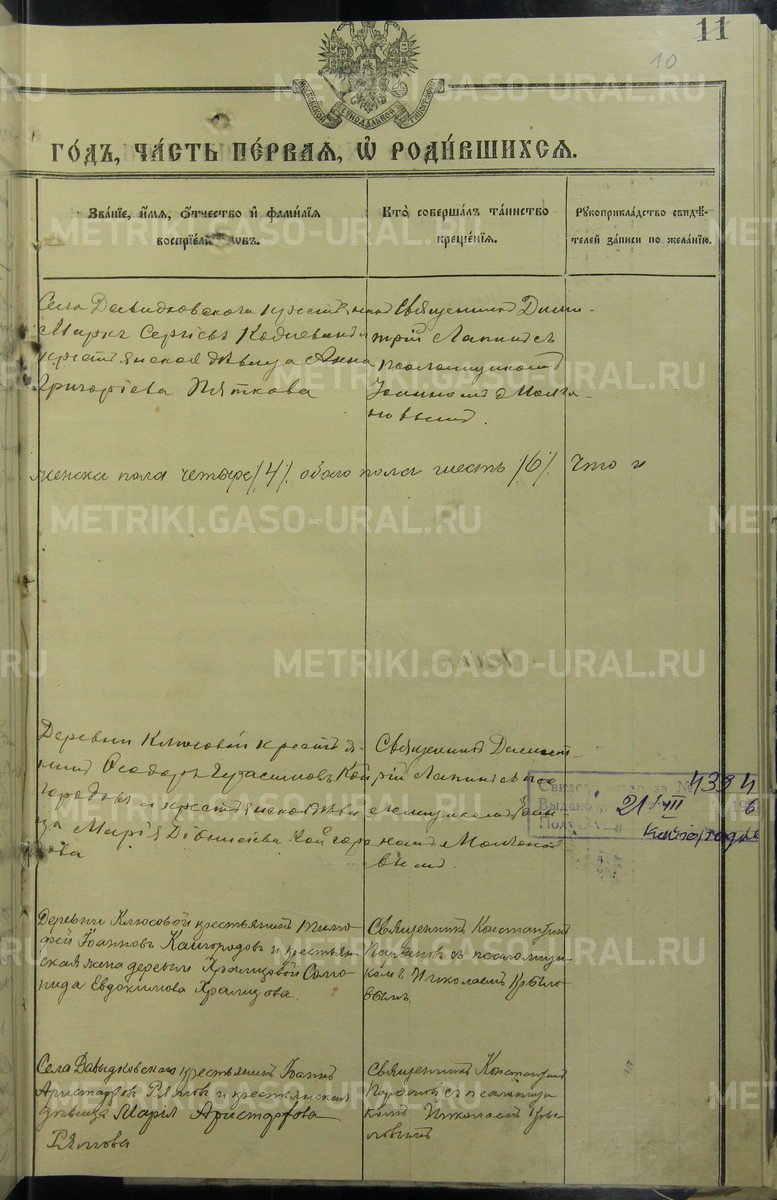 11
10
МОСКОВСКОЙ СѴНОДАЛЬНОЙ ТИПОГРАФІИ
ГО́ДЪ, ЧА́СТЬ ПЕ́РВАЯ, Ѡ҆ РОДИ́ВШИХСЯ.
Зва́нїе, и҆́мя, ѻ҆́тчество и҆ фами́лїя
воспрїе́мниковъ.
Кто̀ соверша́лъ та́инство
креще́нїя.
Рꙋкоприкла́дство свидѣ́-
телей за́писи по жела́нїю.
Села Давыдковскаго крест
Маркъ Сергіевъ
крестьянская дѣвица Анна
Григоріева Пяткова
Священникъ Дими-
трій Лапинъ съ
псаломщикомъ
Іоанномъ Молча-
новымъ.
женска пола четыре /4/. обоего пола шесть /6/. Что и
Деревни Клюсовой крестья-
нинъ Ѳеодоръ Кай-
городовъ и крестьянская дѣви-
ца Марія Діонисіева Кайгоро-
дова
Священникъ Димит-
рій Лапинъ съ пса-
ломщикомъ Іоан-
номъ Молчано-
вымъ.
4334
Выдано 21/VII 6
Кайгородов
Деревни Клюсовой крестьянинъ Тимо-
фей Іоанновъ Кайгородовъ и крестьян-
ская жена деревни Храмцовой Соло-
нида Евдокимова Храмцова.
Священникъ Константинъ
съ псаломщи-
комъ Николаемъ Крыло-
вымъ.
Села Давыдковскаго крестьянинъ Іоаннъ
Аристарховъ Ряповъ и крестьянская
дѣвица Марія Аристархова
Ряпова
Священникъ Константинъ
съ псаломщи-
комъ Николаемъ Кры-
ловымъ
METRIKI.GASO-URAL.RU